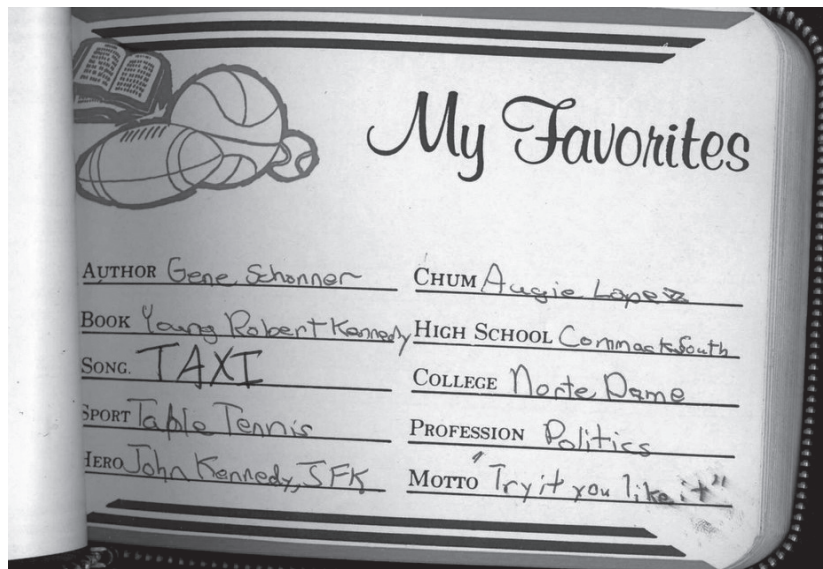 My Favorites
AUTHOR Gene Schonner
BOOK Young Robert Kennedy
SONG. TAXI
SPORT Table Tennis
HERO John Kennedy, JFK
CHUM Augie Lopez
HIGH SCHOOL Commack South
COLLEGE Norte Dame
PROFESSION Politics
MOTTO "Try it you like it"